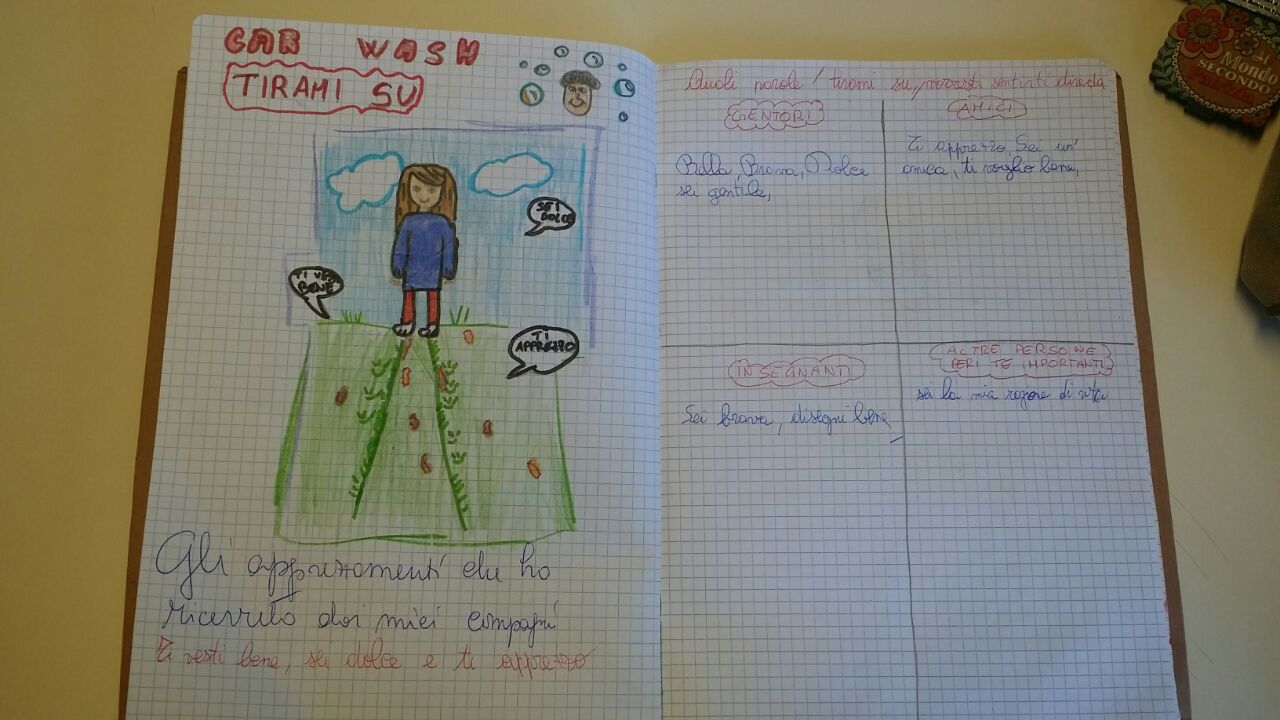 CAR WASH
TIRAMI SU
SEI
DOLCE
TI VESTI
BENE
TI
APPREZZO
Gli apprezzamenti che ho
ricevuto dai miei compagni
Ti vesti bene, sei dolce e ti apprezzo
Quali parole / tirami su, vorresti sentirti dire da
GENITORI
Bella, Brava, Dolce
sei gentile,
AMICI
Ti apprezzo, Sei un'
amica, ti voglio bene,
INSEGNANTI
Sei brava, disegni bene
ALTRE PERSONE
PERI TE IMPORTANTI
sei la mia ragione di vita
SI
Mondo
SECONDO